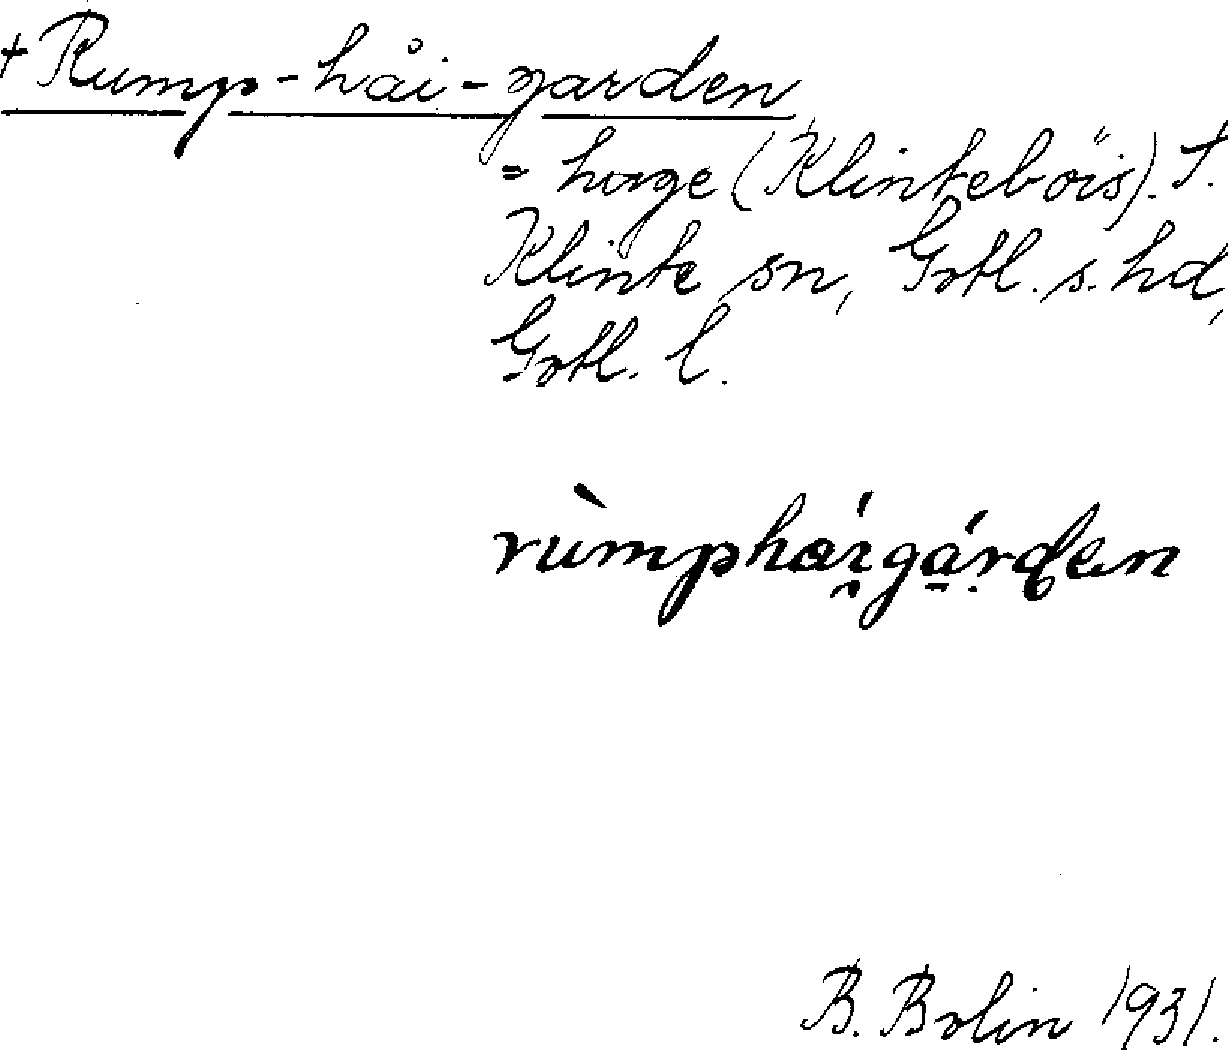 + Rump-håi-garden
= hage (Klinteböis). T.
Klinte sn, Gotl. s. hd,
Gotl. l.
B. Bolin 1931.